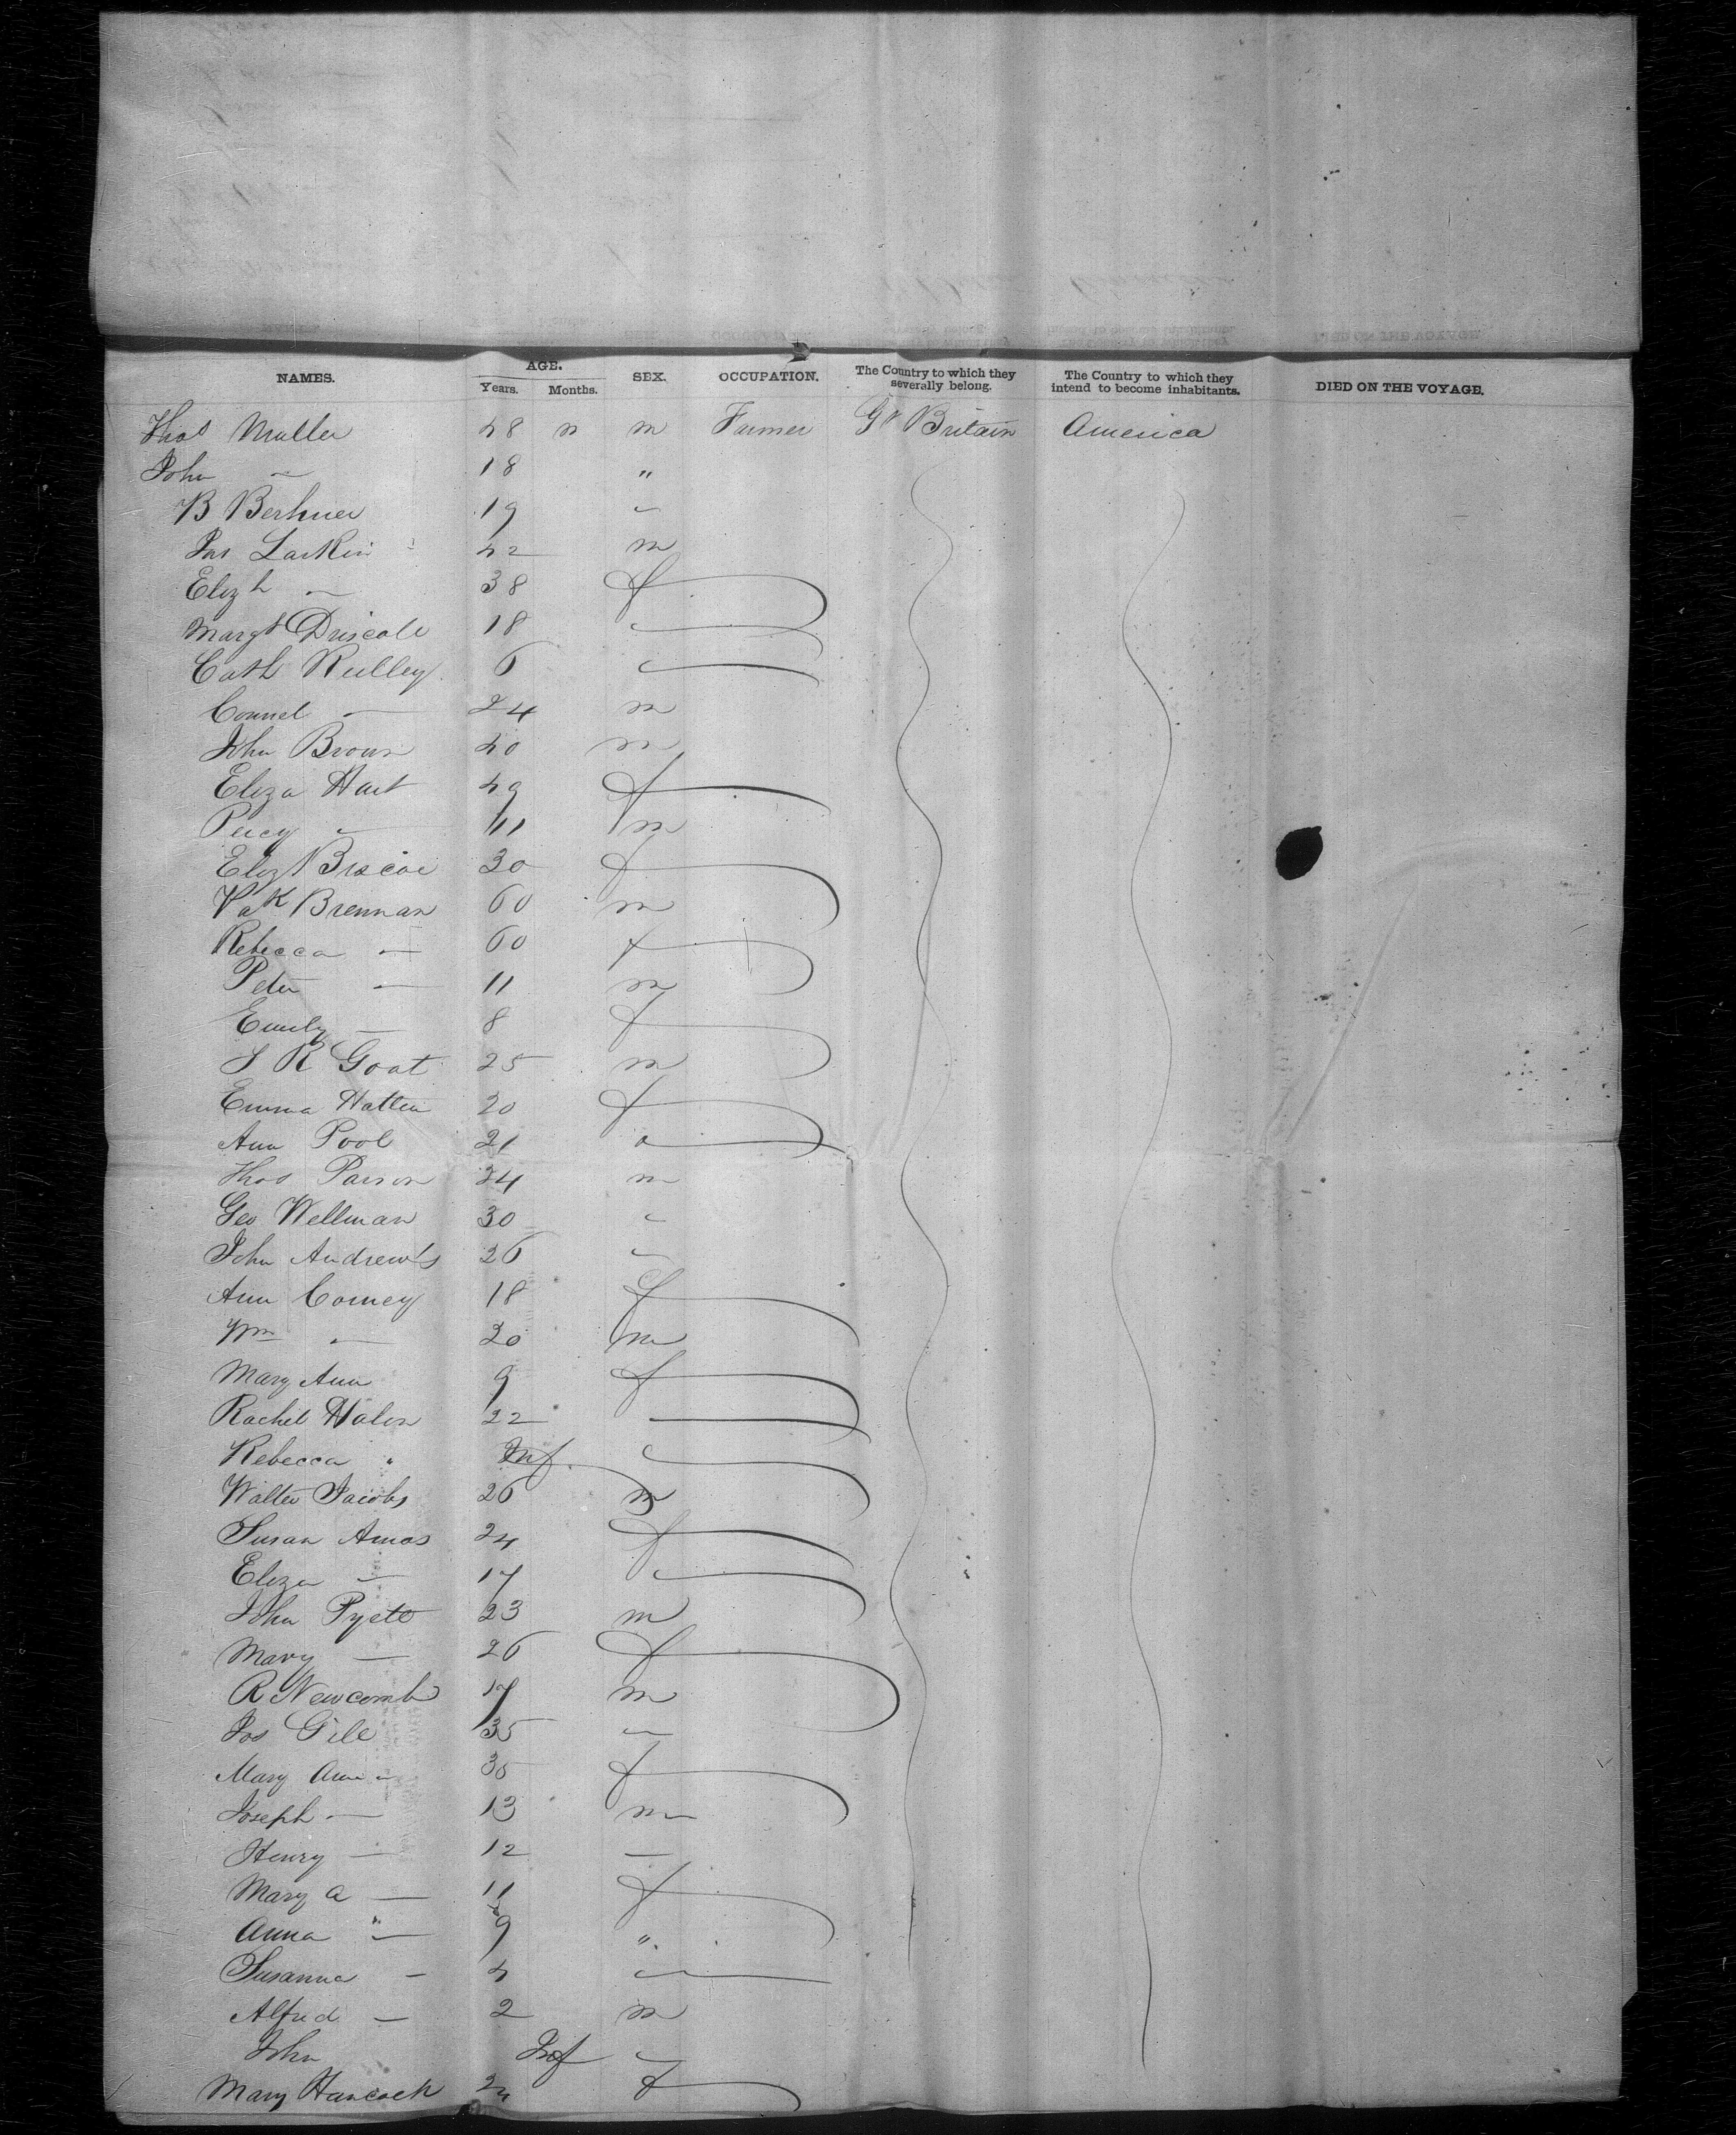 NAMES. AGE. Years. Months. SEX. OCCUPATION. The Country to which they severally belong. The Country to which they intend to become inhabitants. DIED ON THE VOYAGE.
Thos Muller 48 m Farmer Gt Britain America
John — 18 "
B 19
Larkin 42 m
Elizh — 38 f
Margt Driscoll 18
Cath 6
Connel — 24 m
John Brown 40 m
Eliza Hart 49 f
Percy 11 m
Eliz Briscoe 30 f
Patk Brennan 60 m
Rebecca — 60 f
Peter — 11 m
Emily — 8 f
R Goat 25 m
Emma Hatten 20 f
Ann Pool 21
Thos Parson 34 m
Geo Wellman 30
John Andrews 26
Ann Comey 18 f
Wm — 20 m
Mary Ann 9 f
Rachel 22
Rebecca " Inf
Walter Jacobs 26 m
Susan Amos 24 f
Eliza — 17
John 23 m
Mary — 26 f
R Newcomb 17 m
Jos Gile 35
Mary Ann 35 f
Joseph — 13 m
Henry — 12 —
Mary A — 11 f
Anna " — 9 "
Susanna — 4
Alfred — 2 m
John Inf
Mary Hancock 24 f